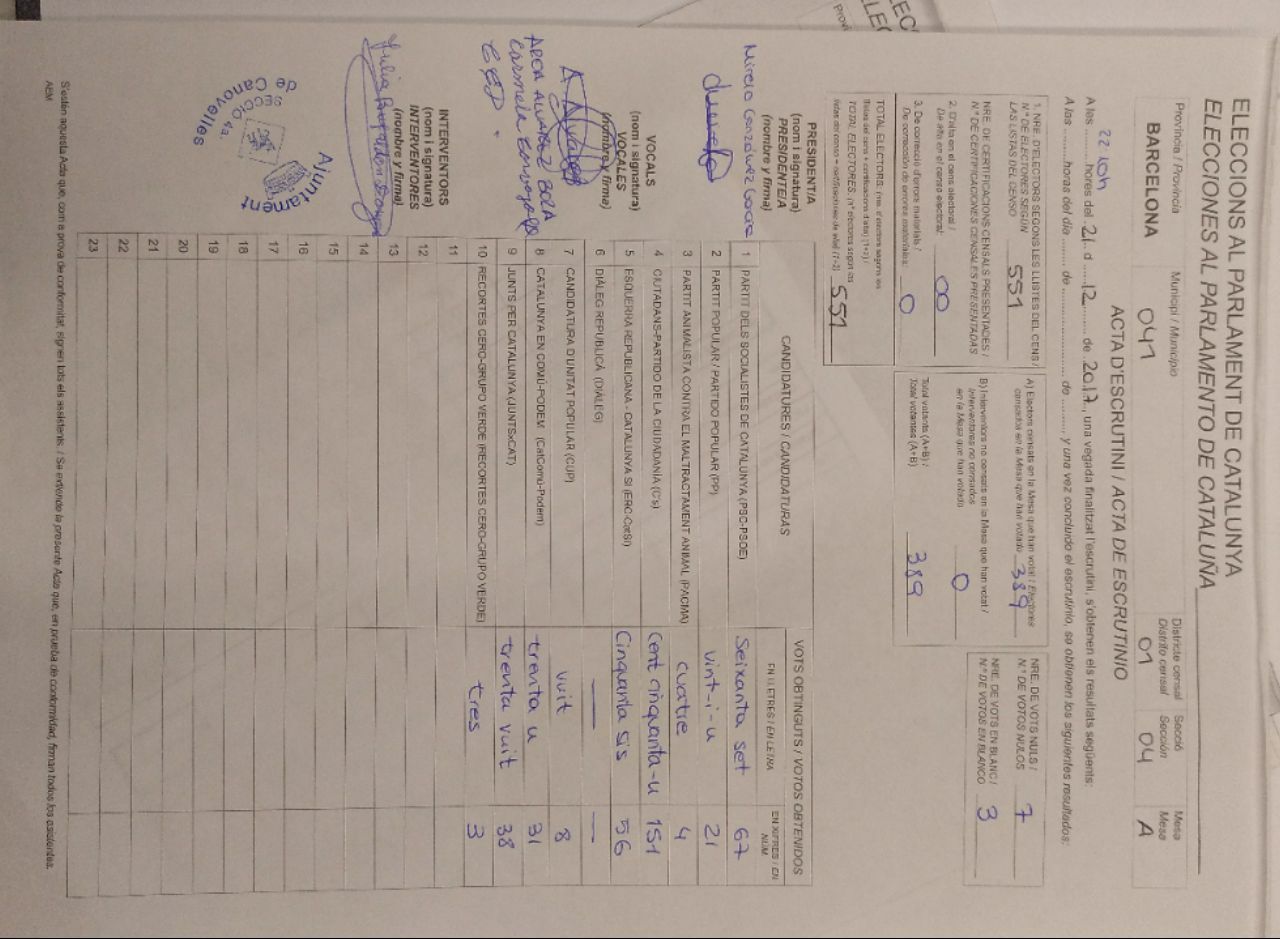 ELECCIONS AL PARLAMENT DE CATALUNYA
ELECCIONES AL PARLAMENTO DE CATALUÑA
Província / Provincia
Municipi / Municipio
Districte censal
Distrito censal
Secció
Sección
Mesa
Mesa
BARCELONA
041
01
04
A
ACTA D'ESCRUTINI / ACTA DE ESCRUTINIO
A les 22'10h hores del 21 d 12 de 2017, una vegada finalitzat l'escrutini, s'obtenen els resultats següents:
A las horas del día de de y una vez concluido el escrutinio, se obtienen los siguientes resultados:
1. NRE. D'ELECTORS SEGONS LES LLISTES DEL CENS /
N.º DE ELECTORES SEGÚN
LAS LISTAS DEL CENSO 551
NRE. DE CERTIFICACIONS CENSALS PRESENTADES /
N.º DE CERTIFICACIONES CENSALES PRESENTADAS
2. D'alta en el cens electoral /
De alta en el censo electoral: 00
3. De correcció d'errors materials /
De corrección de errores materiales: 0
TOTAL ELECTORS. (nre. d'electors segons les
llistes del cens + certificacions d'alta) (1+2) /
TOTAL ELECTORES. (n.º electores según las
listas del censo + certificaciones de alta) (1+2) 551
A) Electors censats en la Mesa que han votat / Electores
censados en la Mesa que han votado 389
B) Interventors no censats en la Mesa que han votat /
Interventores no censados
en la Mesa que han votado 0
Total votants (A+B) /
Total votantes (A+B) 389
NRE. DE VOTS NULS /
N.º DE VOTOS NULOS 7
NRE. DE VOTS EN BLANC /
N.º DE VOTOS EN BLANCO 3
PRESIDENT/A
(nom i signatura)
PRESIDENTE/A
(nombre y firma)
VOCALS
(nom i signatura)
VOCALES
(nombre y firma)
INTERVENTORS
(nom i signatura)
INTERVENTORES
(nombre y firma)
Ajuntament
de Canovelles
CANDIDATURES / CANDIDATURAS
VOTS OBTINGUTS / VOTOS OBTENIDOS
EN LLETRES / EN LETRA
EN XIFRES / EN NÚM
1 PARTIT DELS SOCIALISTES DE CATALUNYA (PSC-PSOE) Seixanta set 67
2 PARTIT POPULAR / PARTIDO POPULAR (PP) vint-i-u 21
3 PARTIT ANIMALISTA CONTRA EL MALTRACTAMENT ANIMAL (PACMA) cuatre 4
4 CIUTADANS-PARTIDO DE LA CIUDADANÍA (C's) Cent cinquanta-u 151
5 ESQUERRA REPUBLICANA - CATALUNYA SÍ (ERC-CatSí) Cinquanta sis 56
6 DIÀLEG REPUBLICÀ (DIÀLEG) — —
7 CANDIDATURA D'UNITAT POPULAR (CUP) vuit 8
8 CATALUNYA EN COMÚ-PODEM (CatComú-Podem) trenta u 31
9 JUNTS PER CATALUNYA (JUNTSxCAT) trenta vuit 38
10 RECORTES CERO-GRUPO VERDE (RECORTES CERO-GRUPO VERDE) tres 3
11
12
13
14
15
16
17
18
19
20
21
22
23
S'estén aquesta Acta que, com a prova de conformitat, signen tots els assistents. / Se extiende la presente Acta que, en prueba de conformidad, firman todos los asistentes.